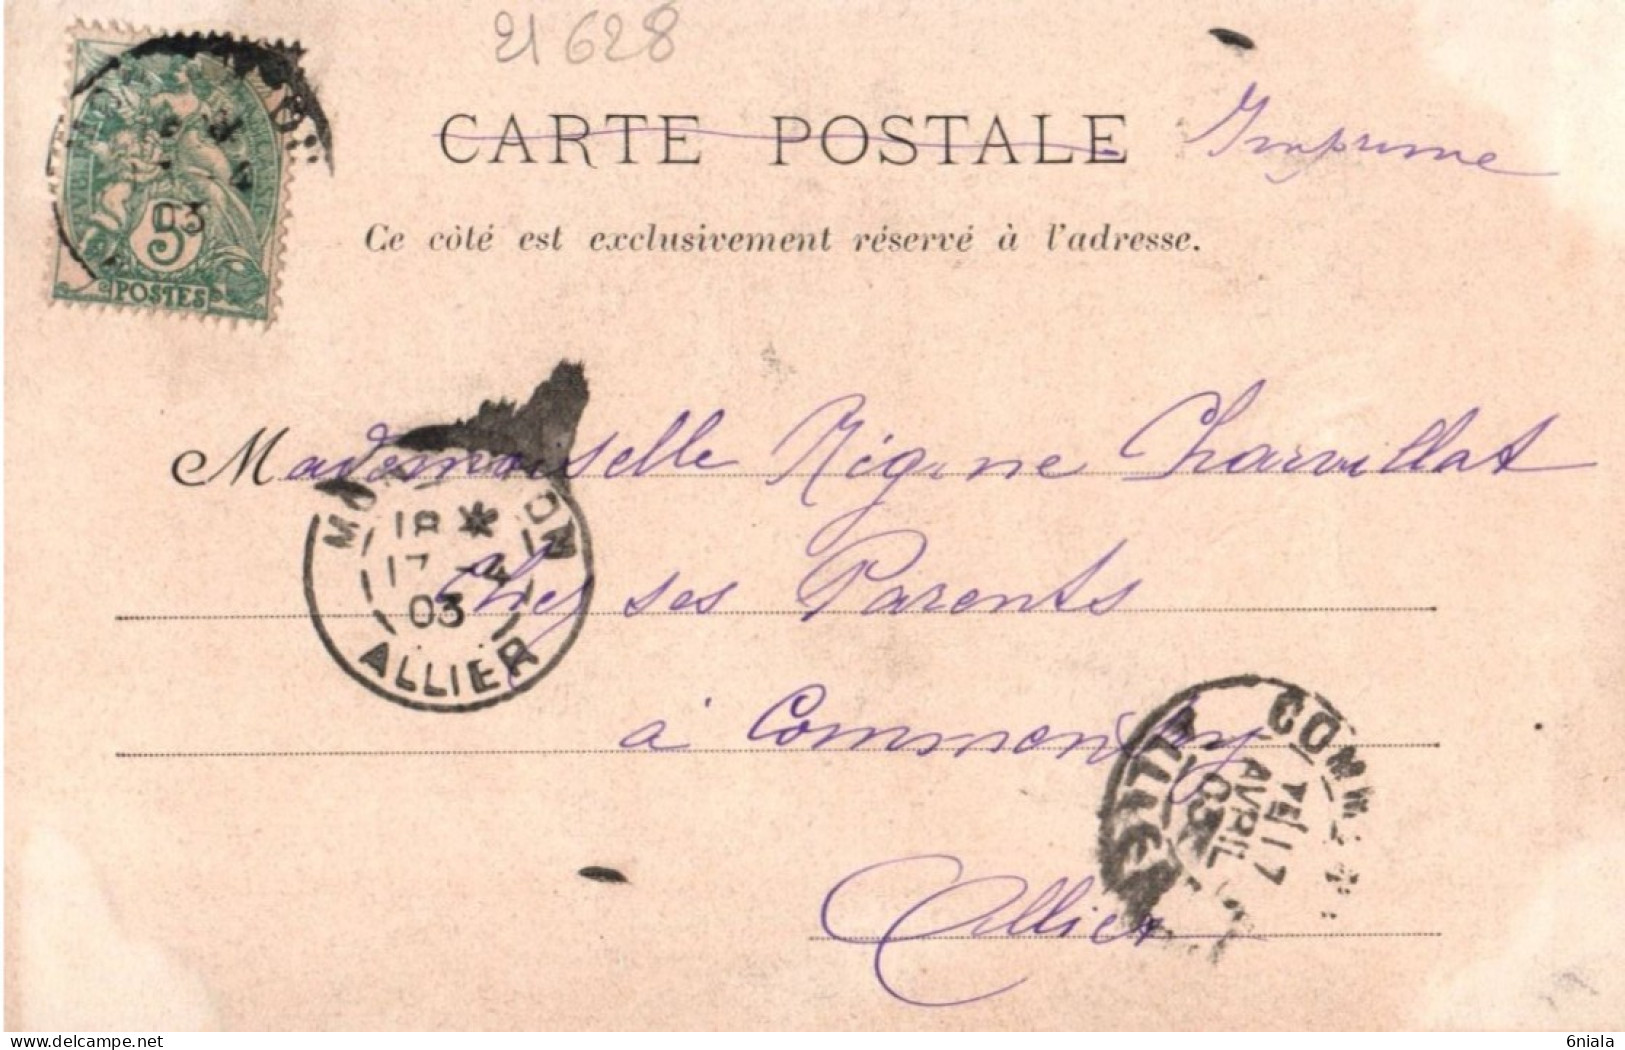 21628
CARTE POSTALE
Imprime
Ce côté est exclusivement réservé à l'adresse.
5
POSTES
03
Mademoiselle Régine Charvillat
18 *
17 -4
03
ALLIER
Chez ses Parents
à Commentry
Allier
17
AVRIL
03
ALLIER
delcampe.net
6niala